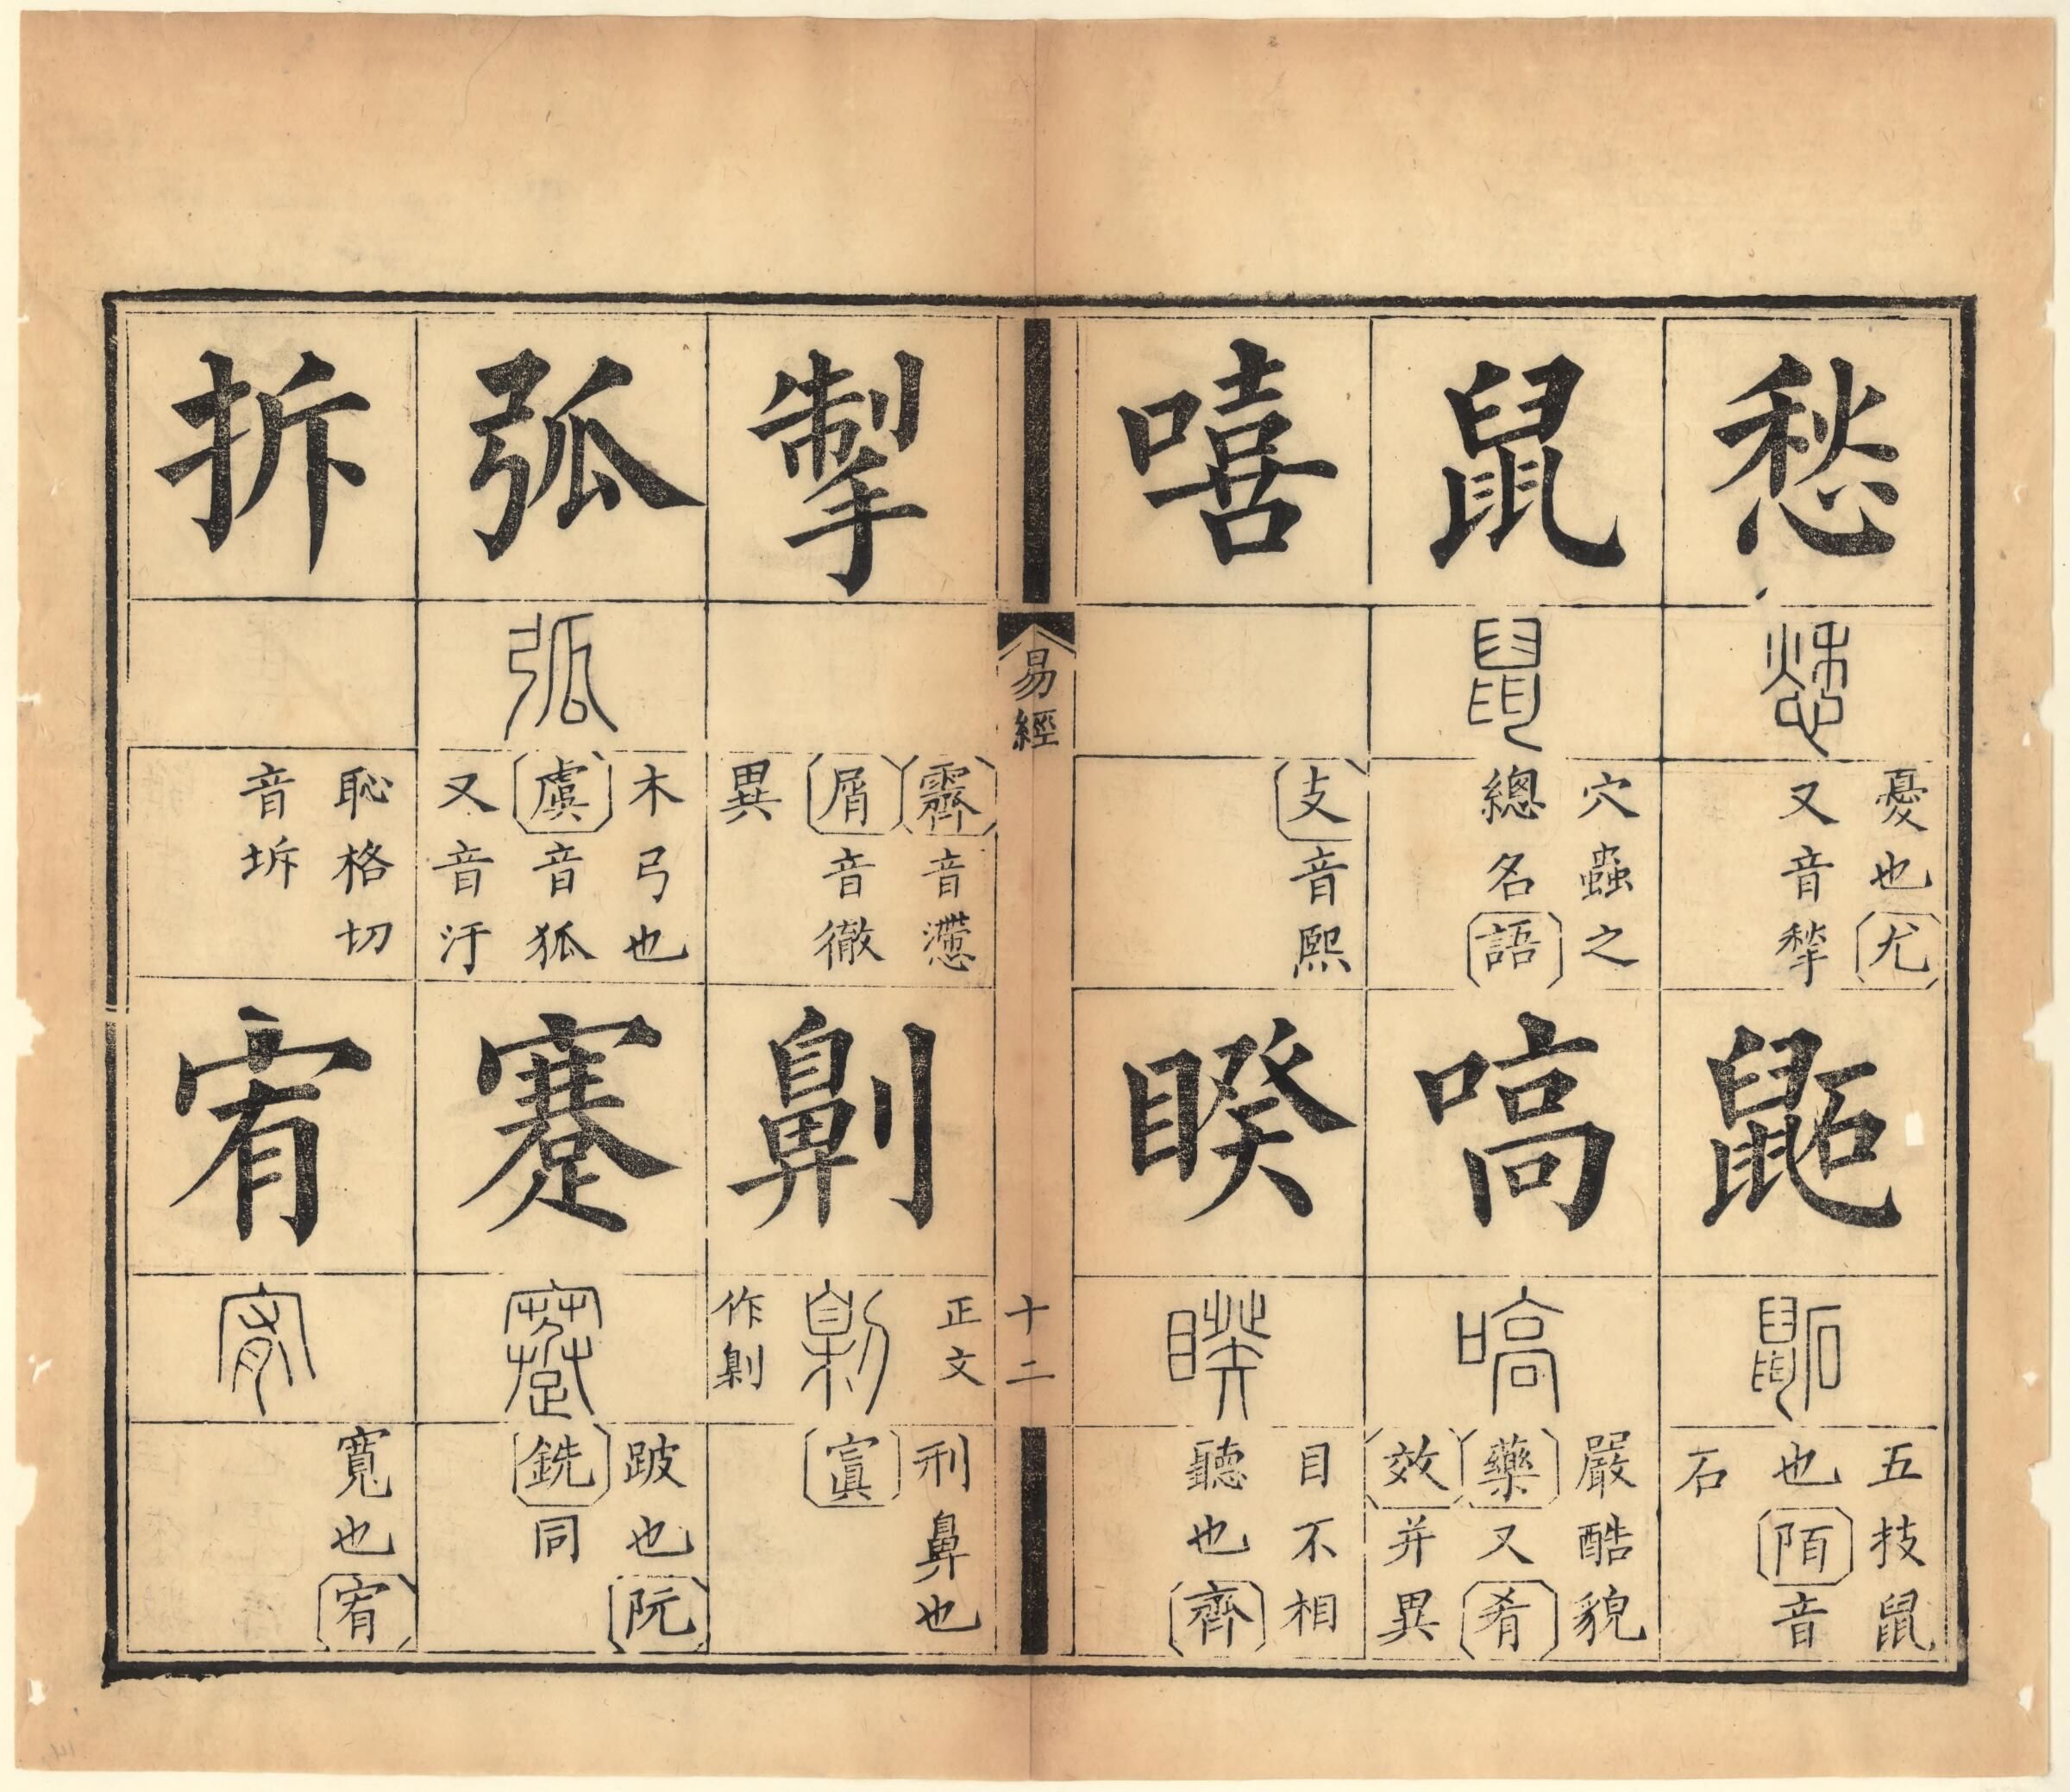 愁
愁
憂也尤
又音揫
鼫
鼫
五技鼠
也陌音
石
鼠
鼠
穴蟲之
總名語
嗃
嗃
嚴酷貌
藥又肴
效并異
嘻
支音熙
睽
睽
目不相
聽也齊
易經
十二
掣
霽音懘
屑音徹
異
劓
正文
劓
作劓
刑鼻也
寘
弧
弧
木弓也
虞音狐
又音汙
蹇
蹇
跛也阮
銑同
拆
恥格切
音坼
宥
宥
寬也宥